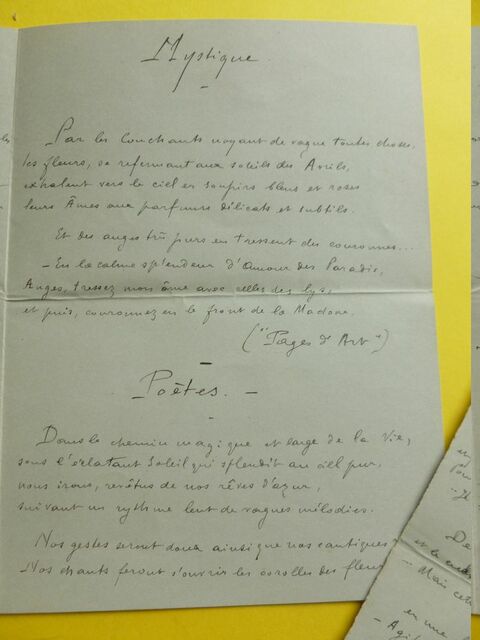 Mystique.
Par les Couchants noyant de vague toutes choses,
les fleurs, se refermant aux soleils des Avrils,
exhalent vers le ciel en soupirs bleus et roses
leurs Âmes aux parfums délicats et subtils.
Et des anges très purs en tressent des couronnes...
- En la calme splendeur d'amour des Paradis,
Anges, tressez mon âme avec celles des lys,
et puis, couronnez en le front de la Madone.
("Pages d'Art")
Poètes. -
Dans le chemin magique et large de la Vie,
sous l'éclatant Soleil qui splendit au ciel pur,
nous irons, revêtus de nos rêves d'azur,
suivant un rythme lent de vagues mélodies.
Nos gestes seront doux ainsi que nos cantiques
Nos chants feront s'ouvrir les corolles des fleur
et
De
et le
- Mais cett
en une
- Agit